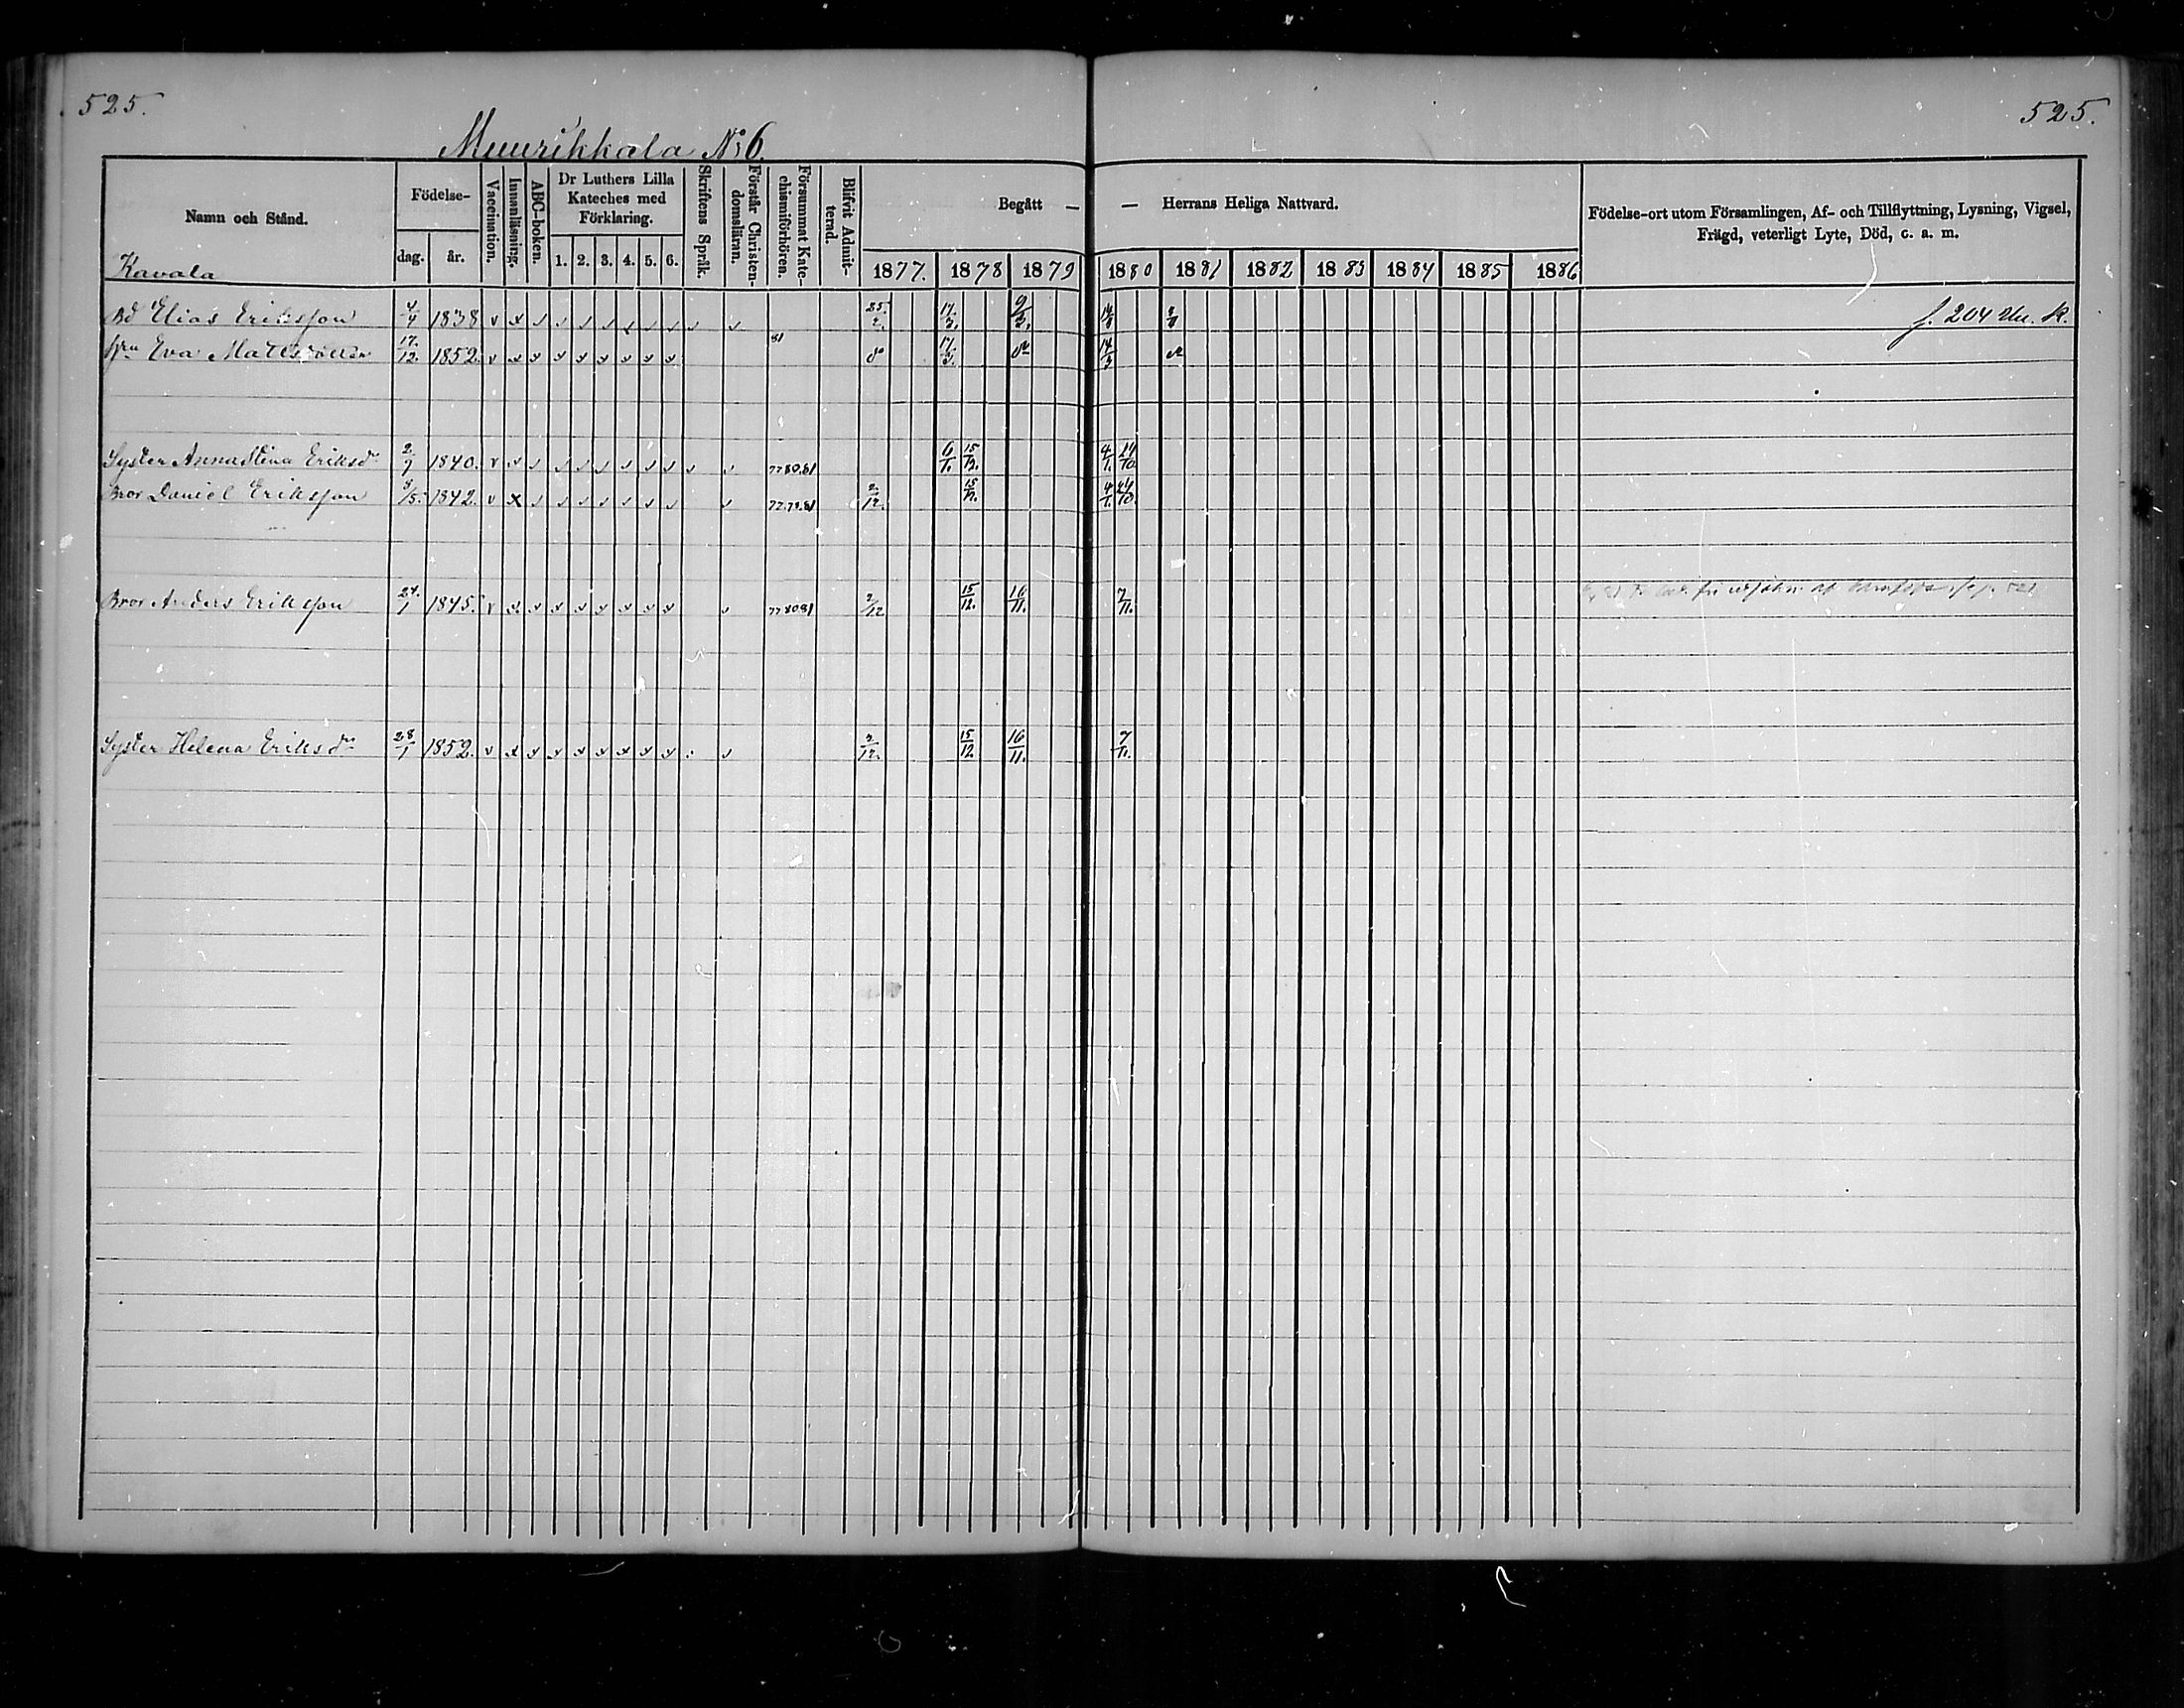 525. 525.
Muurikkala No 6.
Namn och Stånd. Födelse- dag. år. Vaccination. Innanläsning. ABC-boken. Dr Luthers Lilla Kateches med Förklaring. 1. 2. 3. 4. 5. 6. Skriftens Språk. Förstår Christendomsläran. Försummat Katechismiförhören. Blifvit Admitterad. Begått — — Herrans Heliga Nattvard. Födelse-ort utom Församlingen, Af- och Tillflyttning, Lysning, Vigsel, Frägd, veterligt Lyte, Död, c. a. m.
Kavala 1877. 1878 1879 1880 1881 1882 1883 1884 1885 1886
Bd Elias Eriksson 4/4 1838 25/2. 17/3. 9/2. 14/3
Hru Eva Mattsdotter 17./12 1852 81 do 17/3. do 14/3 do
Syster Anna Stina Eriksdr 2/7 1840. 77 80. 81 6/1. 15/12. 4/1. 24/10.
Bror Daniel Eriksson 8/5. 1842. 77. 79. 81 2/12. 15/12. 4/1. 24/10.
Bror Anders Eriksson 24./1 1845. 77 80 81 2/12 15/12. 16/11. 7/11.
Syster Helena Eriksdr 28/1 1852. 2/12. 15/12. 16/11. 7/11.